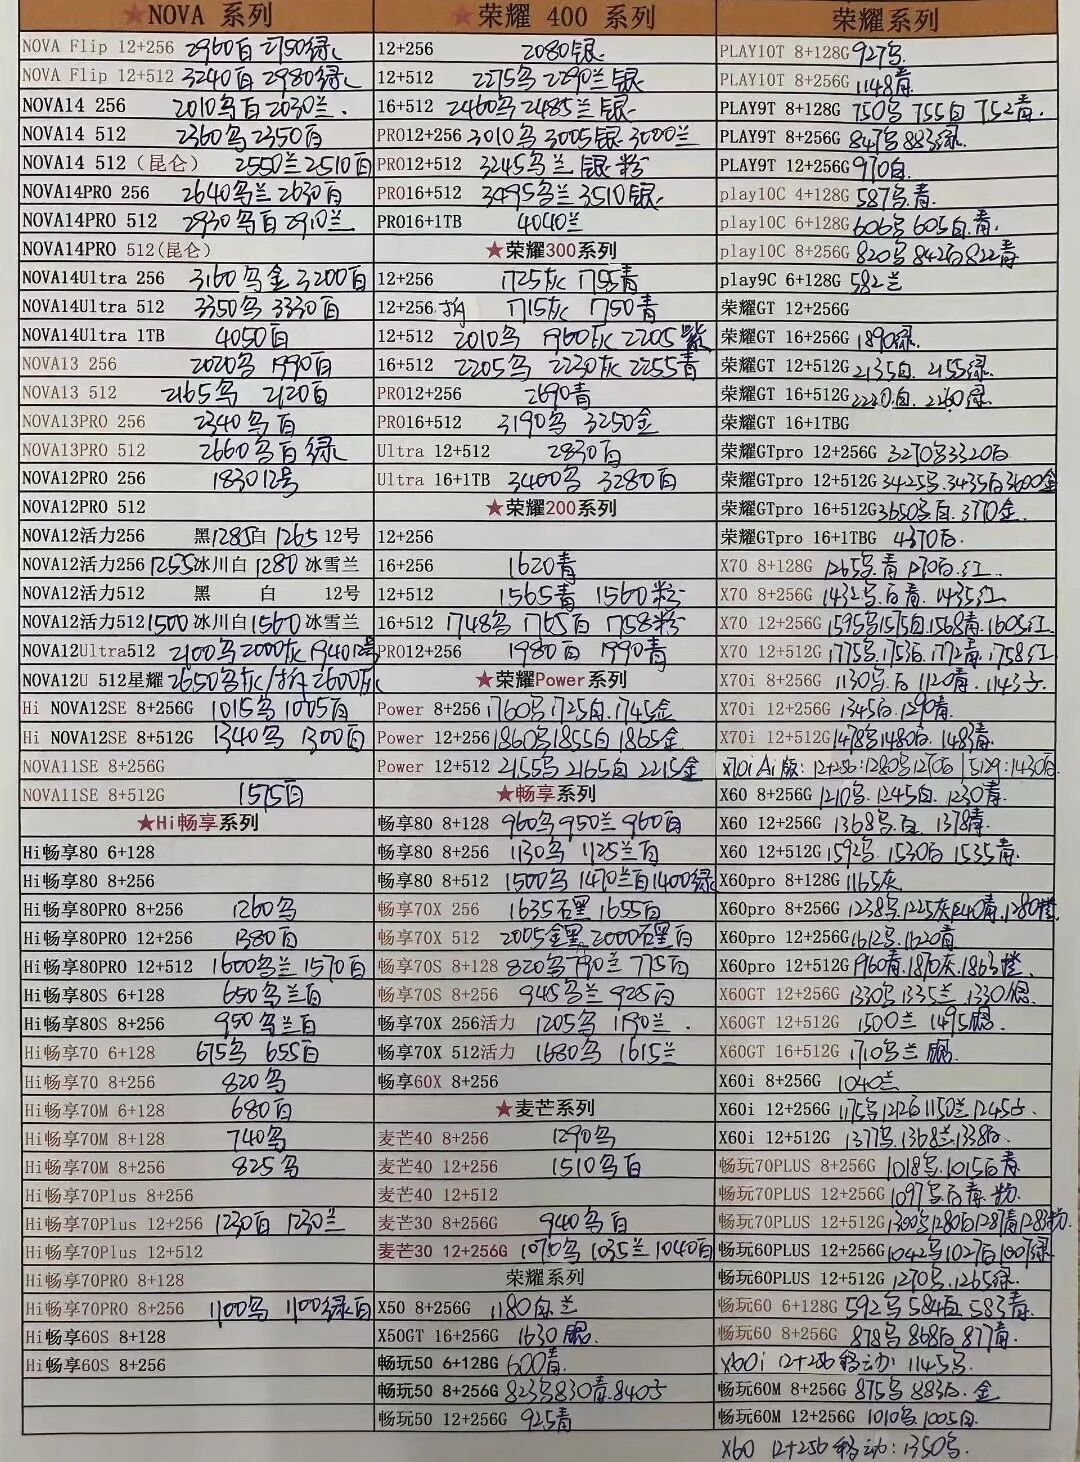 ★NOVA 系列
NOVA Flip 12+256 2960白 2750绿
NOVA Flip 12+512 3240白 2980绿
NOVA14 256 2010乌白 2030兰.
NOVA14 512 2360乌 2350白
NOVA14 512（昆仑） 2550兰 2510白
NOVA14PRO 256 2640乌兰 2630白
NOVA14PRO 512 2930乌白 2910兰
NOVA14PRO 512(昆仑)
NOVA14Ultra 256 3160乌金 3200白
NOVA14Ultra 512 3350乌 3330白
NOVA14Ultra 1TB 4050白
NOVA13 256 2020乌 1990白
NOVA13 512 2165乌 2120白
NOVA13PRO 256 2340乌白
NOVA13PRO 512 2660乌白绿
NOVA12PRO 256 1830 12号
NOVA12PRO 512
NOVA12活力256 黑1285白 1265 12号
NOVA12活力256 1255冰川白 1280 冰雪兰
NOVA12活力512 黑 白 12号
NOVA12活力512 1500冰川白 1560 冰雪兰
NOVA12Ultra512 2100乌 2000灰 1940 12号
NOVA12U 512星耀 2650乌灰/拆2600灰
Hi NOVA12SE 8+256G 1015乌 1005白
Hi NOVA12SE 8+512G 1340乌 1300白
NOVA11SE 8+256G
NOVA11SE 8+512G 1575白
★Hi畅享系列
Hi畅享80 6+128
Hi畅享80 8+256
Hi畅享80PRO 8+256 1260乌
Hi畅享80PRO 12+256 1380白
Hi畅享80PRO 12+512 1600乌兰 1570白
Hi畅享80S 6+128 650乌兰白
Hi畅享80S 8+256 950乌兰白
Hi畅享70 6+128 675乌 655白
Hi畅享70 8+256 820乌
Hi畅享70M 6+128 680白
Hi畅享70M 8+128 740乌
Hi畅享70M 8+256 825乌
Hi畅享70Plus 8+256
Hi畅享70Plus 12+256 1230白 1230兰
Hi畅享70Plus 12+512
Hi畅享70PRO 8+128
Hi畅享70PRO 8+256 1100乌 1100绿白
Hi畅享60S 8+128
Hi畅享60S 8+256
★荣耀 400 系列
12+256 2080银
12+512 2275乌 2290兰银
16+512 2460乌 2485兰银
PRO12+256 3010乌 3005银 3000兰
PRO12+512 3245乌兰银粉
PRO16+512 3495乌兰 3510银
PRO16+1TB 4040兰
★荣耀300系列
12+256 1725灰 1755青
12+256 拆 1715灰 1750青
12+512 2010乌 1960灰 2205紫
16+512 2205乌 2230灰 2255青
PRO12+256 2690青
PRO16+512 3190乌 3250金
Ultra 12+512 2830白
Ultra 16+1TB 3400乌 3280白
★荣耀200系列
12+256
16+256 1620青
12+512 1565青 1560粉
16+512 1748乌 1765白 1758粉
PRO12+256 1980白 1990青
★荣耀Power系列
Power 8+256 1760乌 1725白 1745金
Power 12+256 1860乌 1855白 1865金
Power 12+512 2155乌 2165白 2215金
★畅享系列
畅享80 8+128 960乌 950兰 960白
畅享80 8+256 1130乌 1125兰白
畅享80 8+512 1500乌 1470兰白 1400绿
畅享70X 256 1635石黑 1655白
畅享70X 512 2005金黑 2000石墨白
畅享70S 8+128 820乌 790兰 775白
畅享70S 8+256 945乌兰 925白
畅享70X 256活力 1205乌 1190兰.
畅享70X 512活力 1680乌 1615兰
畅享60X 8+256
★麦芒系列
麦芒40 8+256 1290乌
麦芒40 12+256 1510乌白
麦芒40 12+512
麦芒30 8+256G 940乌白
麦芒30 12+256G 1070乌 1035兰 1040白
荣耀系列
X50 8+256G 1180白.兰
X50GT 16+256G 1630
畅玩50 6+128G 600青.
畅玩50 8+256G 823乌830青.840
畅玩50 12+256G 925青
荣耀系列
PLAY10T 8+128G 927乌
PLAY10T 8+256G 1148青
PLAY9T 8+128G 750乌 755白 752青
PLAY9T 8+256G 847乌 883绿
PLAY9T 12+256G 970白
play10C 4+128G 587乌.青
play10C 6+128G 606乌 605白.青.
play10C 8+256G 820乌 842白 822青
play9C 6+128G 582兰
荣耀GT 12+256G
荣耀GT 16+256G 1890绿
荣耀GT 12+512G 2135白. 2155绿
荣耀GT 16+512G 2220.白. 2260绿
荣耀GT 16+1TBG
荣耀GTpro 12+256G 3270乌3320白
荣耀GTpro 12+512G 3425乌.3435白3600金
荣耀GTpro 16+512G 3650乌白.3770金.
荣耀GTpro 16+1TBG 4370白.
X70 8+128G 1265乌.青 1270白.红.
X70 8+256G 1432乌.白青. 1435红
X70 12+256G 1595乌1575白1568青.1605红.
X70 12+512G 1775乌.1753白.1772青.1758红
X70i 8+256G 1130乌.白 1120青.1143子.
X70i 12+256G 1345白.1290青.
X70i 12+512G 1478乌1480白.1483青.
X70i Ai版:12+256:1280乌1270白|512g:1430白.
X60 8+256G 1210乌.1245白.1230青
X60 12+256G 1368乌.白. 1378青.
X60 12+512G 1592乌. 1530白 1535青.
X60pro 8+128G 1165灰
X60pro 8+256G 1238乌.1225灰1240青.1280橙
X60pro 12+256G 1612乌.1620青.
X60pro 12+512G 1960青.1870灰.1863橙.
X60GT 12+256G 1330乌1335兰.1330
X60GT 12+512G 1500兰 1495
X60GT 16+512G 1710乌兰
X60i 8+256G 1040兰
X60i 12+256G 1175乌1212白1150兰1245子.
X60i 12+512G 1377乌.1368兰1338白.
畅玩70PLUS 8+256G 1018乌.1015白青
畅玩70PLUS 12+256G 1097乌白青.粉.
畅玩70PLUS 12+512G 1300乌1280白1287青1283粉.
畅玩60PLUS 12+256G 1042乌1027白1007绿
畅玩60PLUS 12+512G 1270乌.1265绿.
畅玩60 6+128G 592乌 584白 583青
畅玩60 8+256G 878乌 868白 877青.
X60i 12+256移动: 1145乌.
畅玩60M 8+256G 875乌 883白.金
畅玩60M 12+256G 1010乌.1005白.
X60 12+256移动:1350乌.